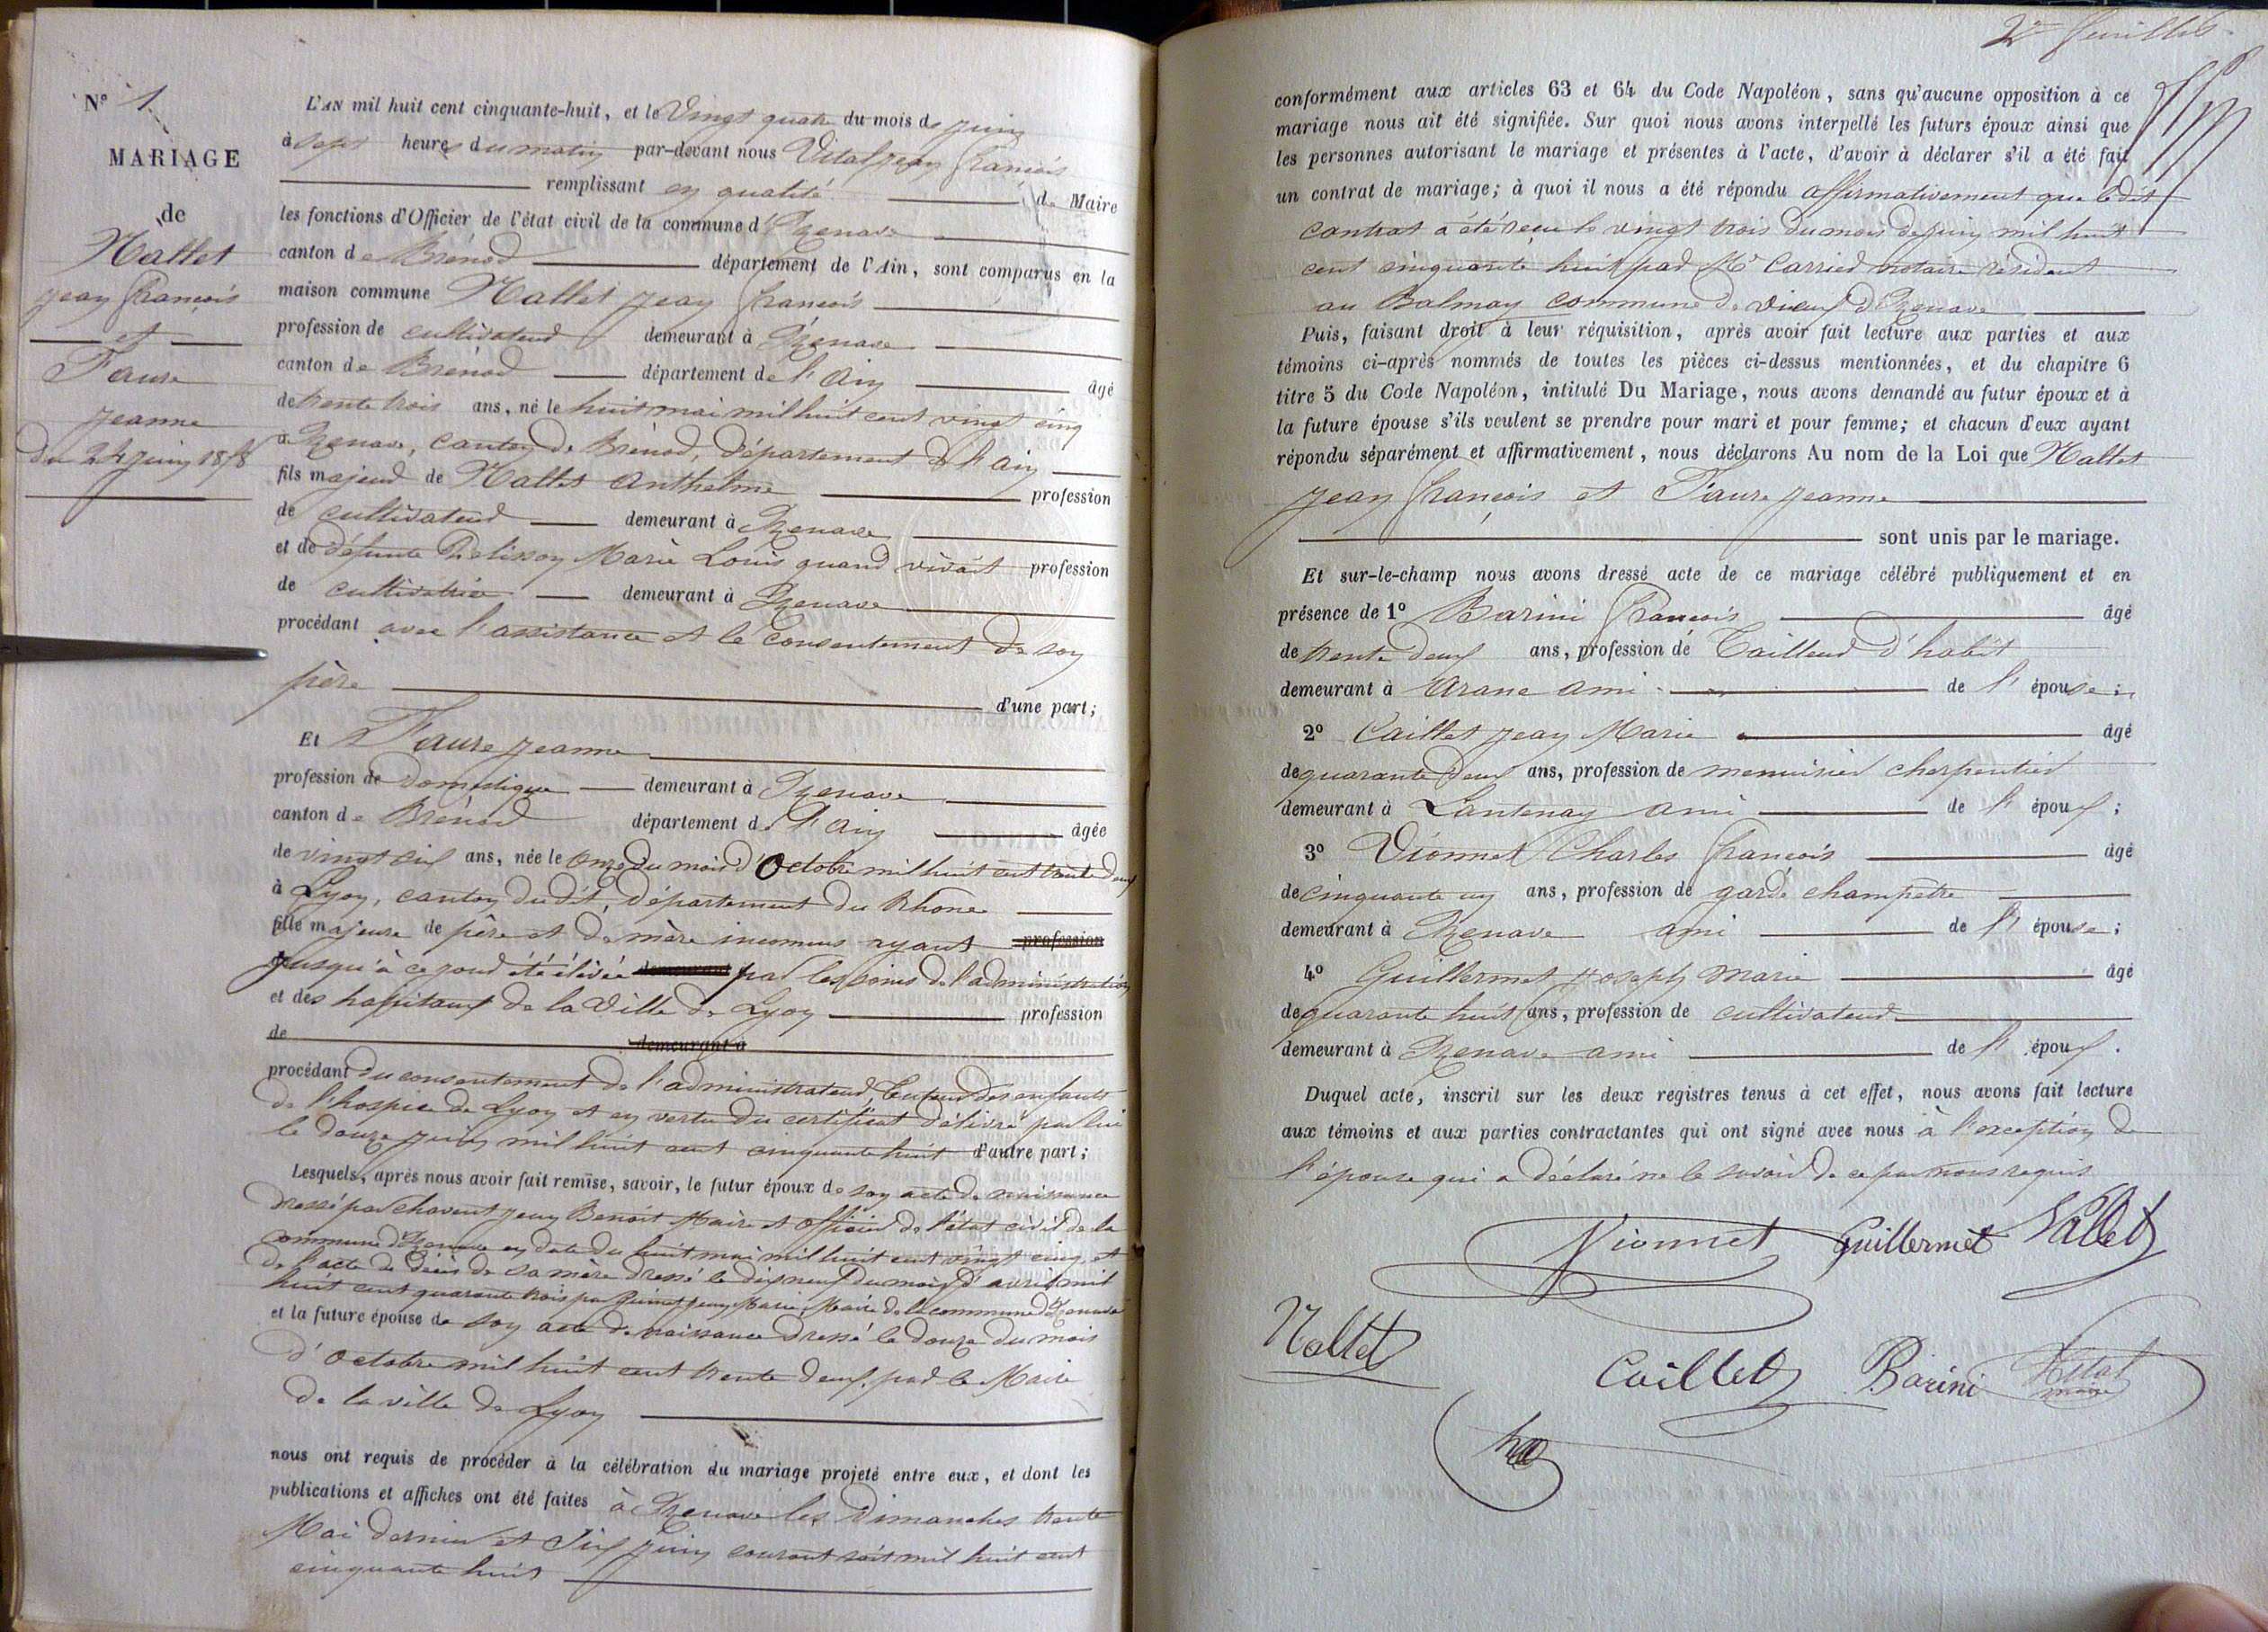 N° 1.
MARIAGE
de
Nallet
Jean François
et
Faure
Jeanne
du 24 juin 1858
L'AN mil huit cent cinquante-huit, et le Vingt quatre du mois de juin
à sept heures du matin par-devant nous Vital Jean François
remplissant en qualité de Maire
les fonctions d'Officier de l'état civil de la commune d'Izenave
canton de Brénod département de l'Ain, sont comparus en la
maison commune Nallet Jean François
profession de cultivateur demeurant à Izenave
canton de Brénod département de l'Ain âgé
de trente trois ans, né le huit mai mil huit cent vingt cinq
à Izenave, canton de Brénod, département de l'Ain
fils majeur de Nallet Anthelme profession
de cultivateur demeurant à Izenave
et de défunte Pelisson Marie Louis quand vivait profession
de cultivatrice demeurant à Izenave
procédant avec l'assistance et le consentement de son
père d'une part;
Et Faure Jeanne
profession de domestique demeurant à Izenave
canton de Brénod département de l'Ain âgée
de vingt six ans, née le onze du mois d'Octobre mil huit cent trente deux
à Lyon, canton dudit, département du Rhône
fille majeure de père et de mère inconnus ayant profession
jusqu'à ce jour été élevée par les soins de l'administration
et des hopitaux de la Ville de Lyon profession
de demeurant à
procédant du consentement de l'administrateur, tuteur des enfants
de l'hospice de Lyon et en vertu du certificat délivré par lui
le douze juin mil huit cent cinquante huit d'autre part;
Lesquels, après nous avoir fait remise, savoir, le futur époux de son acte de naissance
dressé par Chavent Jean Benoit Maire et officier de l'état civil de la
commune d'Izenave en date du huit mai mil huit cent vingt cinq, et
de l'acte de décès de sa mère dressé le dix neuf du mois d'avril mil
huit cent quarante trois par Jean Marie, Maire de la commune d'Izenave
et la future épouse de son acte de naissance dressé le douze du mois
d'octobre mil huit cent trente deux par le Maire
de la ville de Lyon
nous ont requis de procéder à la célébration du mariage projeté entre eux, et dont les
publications et affiches ont été faites à Izenave les Dimanches trente
Mai dernier et six juin courant soit mil huit cent
cinquante huit
2me feuillet
conformément aux articles 63 et 64 du Code Napoléon, sans qu'aucune opposition à ce
mariage nous ait été signifiée. Sur quoi nous avons interpellé les futurs époux ainsi que
les personnes autorisant le mariage et présentes à l'acte, d'avoir à déclarer s'il a été fait
un contrat de mariage; à quoi il nous a été répondu affirmativement que le dit
contrat a été reçu le vingt trois du mois de juin mil huit
cent cinquante huit par Me Carrier notaire résident
au Balmay commune de vieux d'Izenave
Puis, faisant droit à leur réquisition, après avoir fait lecture aux parties et aux
témoins ci-après nommés de toutes les pièces ci-dessus mentionnées, et du chapitre 6
titre 5 du Code Napoléon, intitulé Du Mariage, nous avons demandé au futur époux et à
la future épouse s'ils veulent se prendre pour mari et pour femme; et chacun d'eux ayant
répondu séparément et affirmativement, nous déclarons Au nom de la Loi que Nallet
Jean François et Faure Jeanne
sont unis par le mariage.
Et sur-le-champ nous avons dressé acte de ce mariage célébré publiquement et en
présence de 1° Barini François âgé
de trente deux ans, profession de Tailleur d'habit
demeurant à Arane ami de l'épouse;
2° Caillet Jean Marie âgé
de quarante deux ans, profession de menuisier charpentier
demeurant à Lantenay ami de l'époux;
3° Vionnet Charles François âgé
de cinquante un ans, profession de garde champêtre
demeurant à Izenave ami de l'épouse;
4° Guillermet Joseph Marie âgé
de quarante huit ans, profession de cultivateur
demeurant à Izenave ami de l'époux.
Duquel acte, inscrit sur les deux registres tenus à cet effet, nous avons fait lecture
aux témoins et aux parties contractantes qui ont signé avec nous à l'exception de
l'épouse qui a déclaré ne le savoir de ce par nous requis
Vionnet Guillermet Nallet
Nallet
Caillet Barini Vital
maire